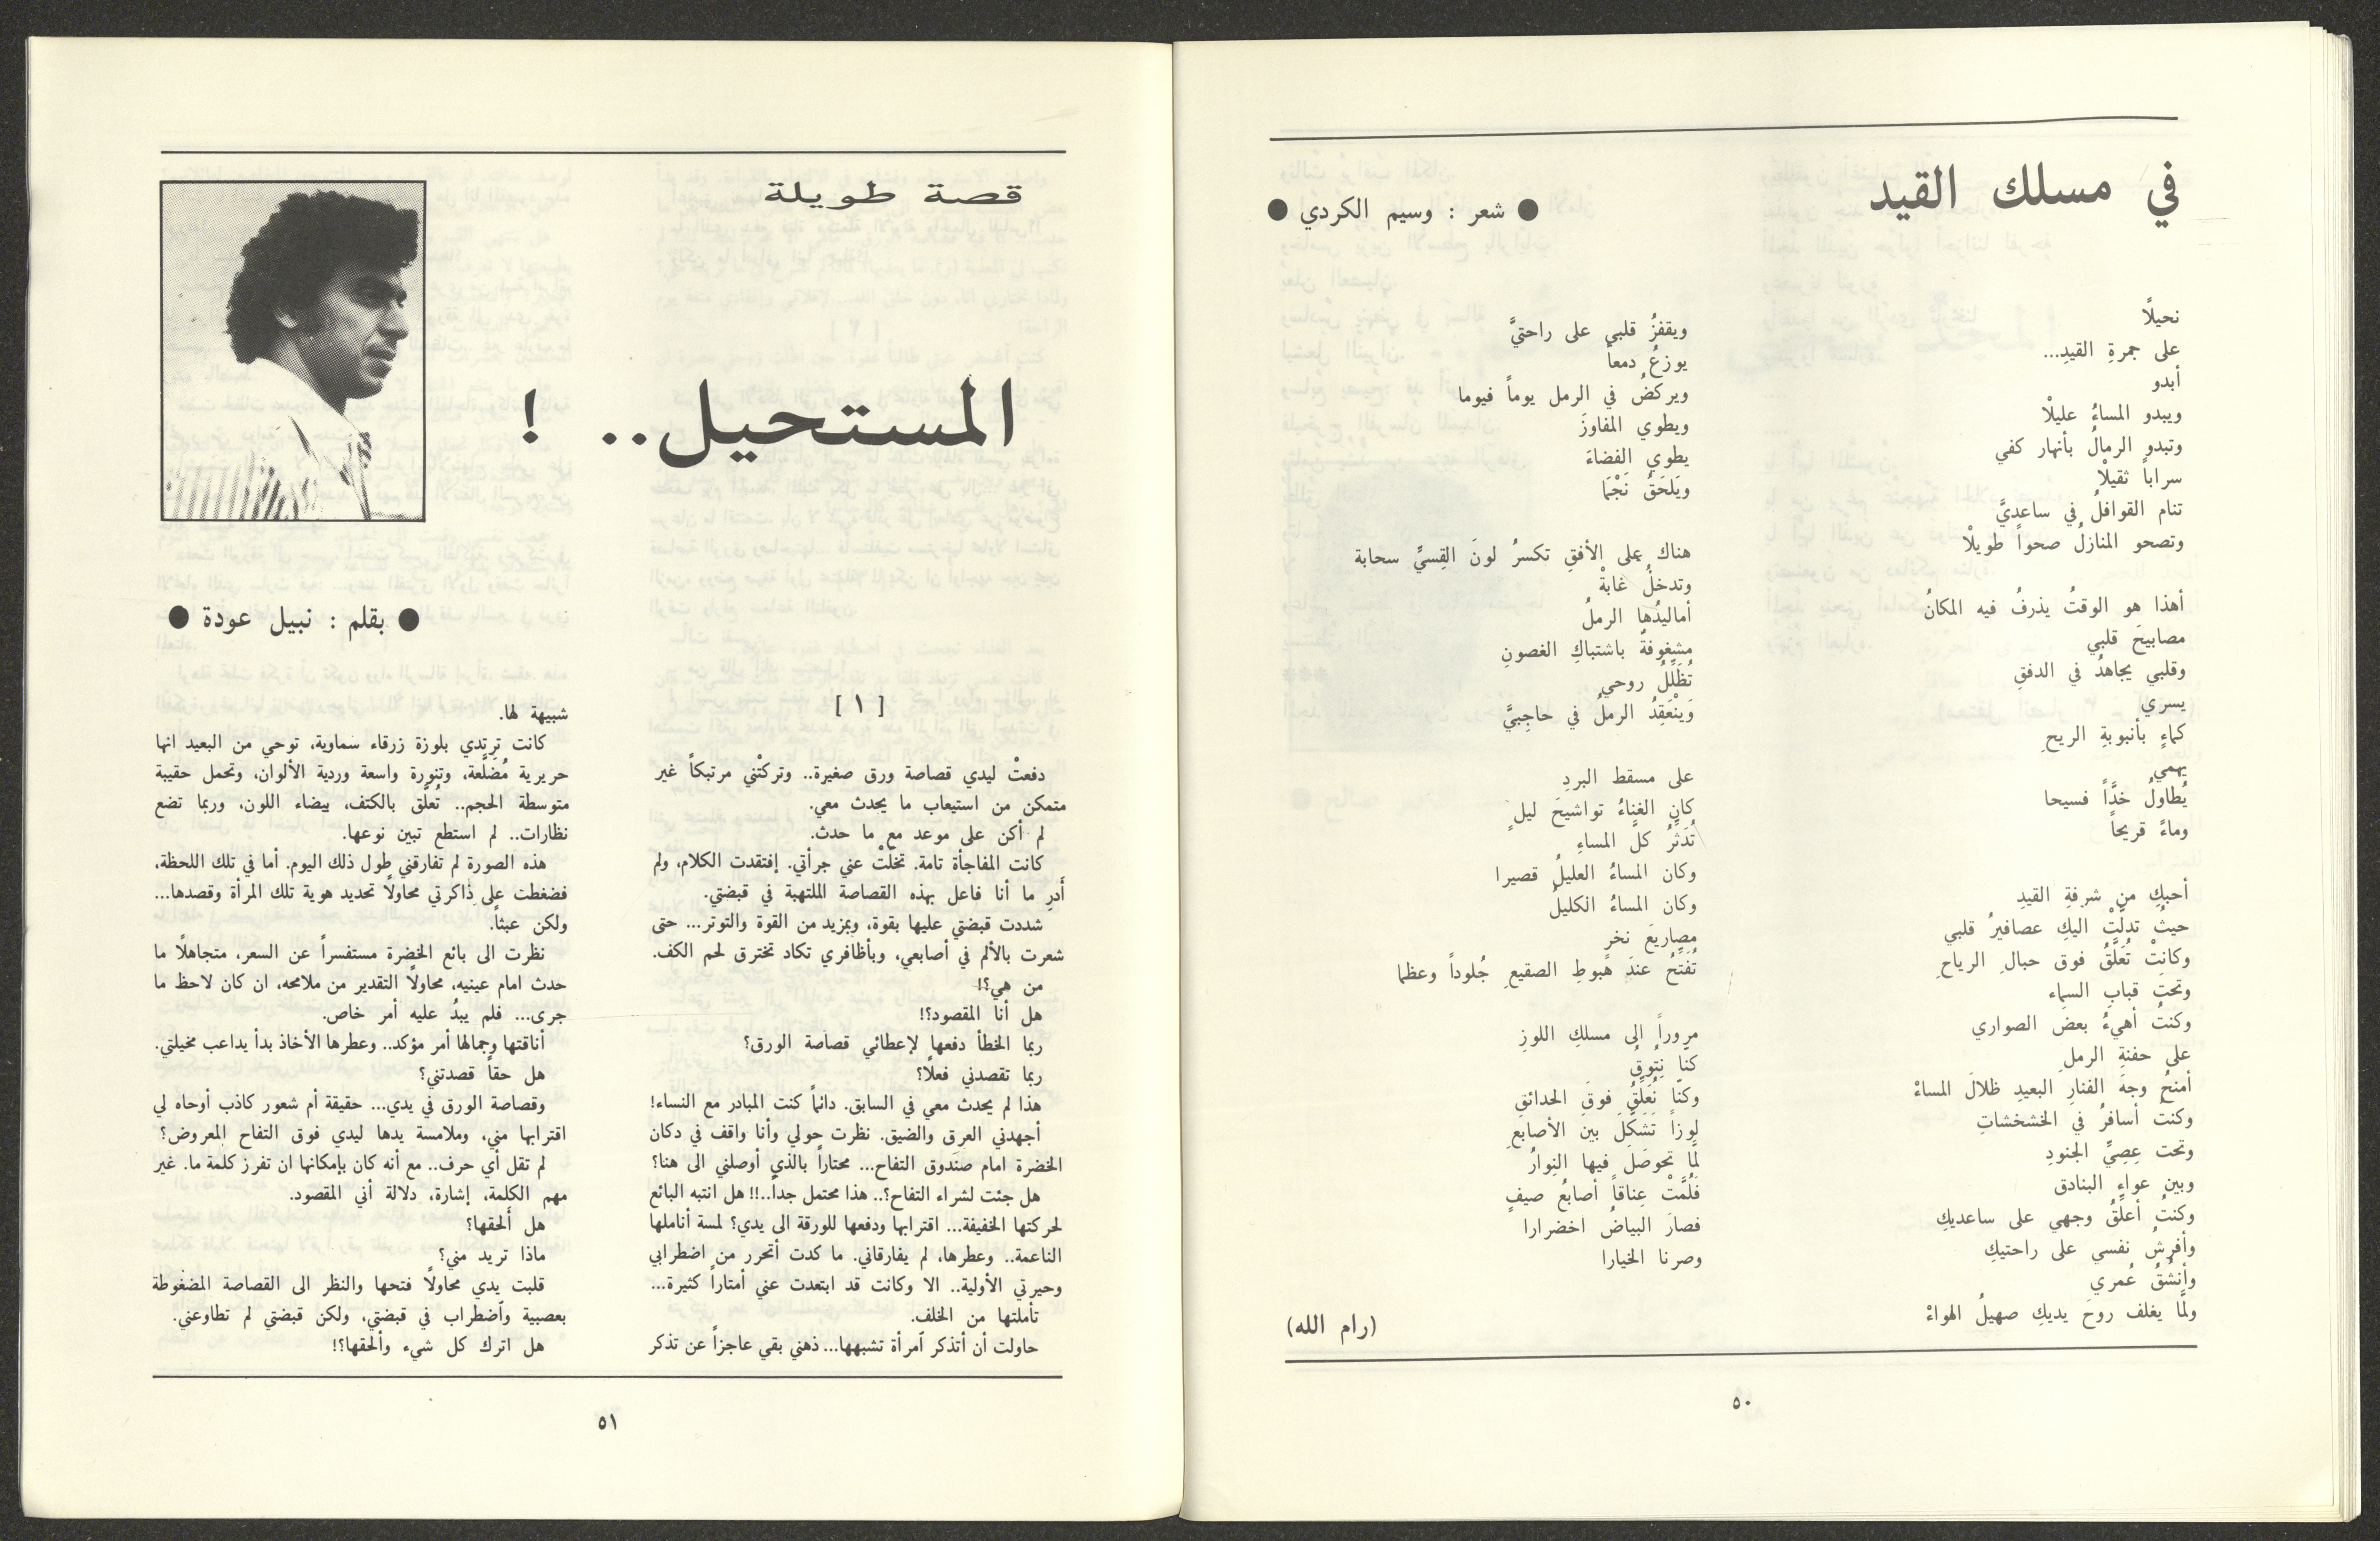 في مسلك القيد
● شعر : وسيم الكردي ●
نحيلًا
على جمرةِ القيدِ...
أبدو
ويبدو المساءُ عليلْا
وتبدو الرمالُ بأنهار كفي
سراباً ثقيلْا
تنام القوافلُ في ساعديَّ
وتصحو المنازلُ صحواً طويلْا
أهذا هو الوقتُ يذرفُ فيه المكانُ
مصابيحَ قلبي
وقلبي يجاهدُ في الدفقِ
يسري
كماءٍ بأنبوبةِ الريحِ
يهمي
يُطاولُ خدَّاً فسيحا
وماءً قريحاً
أحبكِ من شرفةِ القيدِ
حيثُ تدلَّتْ اليكِ عصافيرُ قلبي
وكانتْ تُعَلَّقُ فوق حبالِ الرياحِ
وتحتِ قبابِ السماء
وكنتُ أهيءُ بعضَ الصواري
على حفنةِ الرملِ
أمنحُ وجهَ الفنارِ البعيدِ ظلالَ المساءْ
وكنتُ أسافرُ في الخشخشاتِ
وتحت عِصِيِّ الجنودِ
وبين عواءِ البنادق
وكنتُ أعلِّقُ وجهي على ساعديكِ
وأفرشُ نفسي على راحتيكِ
وأنشُقُ عُمري
ولمَّا يغلف روحَ يديكِ صهيلُ الهواءْ
ويقفزُ قلبي على راحتيَّ
يوزعُ دمعاً
ويركضُ في الرمل يوماً فيوما
ويطوي المفاوزَ
يطوي الفضاءَ
ويَلحَقُ نَجْمَا
هناك على الأفقِ تكسرُ لونَ القِسيِّ سحابة
وتدخلُ غابةْ
أماليدُها الرملُ
مشغوفةً باشتباكِ الغصونِ
تُظَلِّلُ روحي
وَينْعَقِدُ الرملُ في حاجِبيَّ
على مسقط البردِ
كان الغناءُ تواشيحَ ليلٍ
تُدَثِّرُ كلَّ المساءِ
وكان المساءُ العليلُ قصيرا
وكان المساءُ الكليلُ
مصاريعَ نخرٍ
تُفَتَّحُ عندَ هُبوطِ الصقيعِ جُلوداً وعظما
مروراً الى مسلكِ اللوزِ
كنّا نَتُوقُ
وكنّا نُعَلِّقُ فوقَ الحدائقِ
لوزاً تَشَكَّلَ بين الأصابعِ
لمَّا تحوصَلَ فيها النِوارُ
فَلُمَّتْ عِناقاً أصابعُ صيفٍ
فصارَ البياضُ اخضرارا
وصرنا الخيارا
(رام الله)
٥٠
قصة طويلة
المستحيل.. !
● بقلم : نبيل عودة ●
[ ١ ]
دفعتْ ليدي قصاصة ورق صغيرة.. وتركتْني مرتبكاً غير
متمكن من استيعاب ما يحدث معي.
لم أكن على موعد مع ما حدث.
كانت المفاجأة تامة. تخلّتْ عني جرأتي. إفتقدت الكلام، ولم
أدرِ ما أنا فاعل بهذه القصاصة الملتهبة في قبضتي.
شددت قبضتي عليها بقوة، وبمزيد من القوة والتوتر... حتى
شعرت بالألم في أصابعي، وبأظافري تكاد تخترق لحم الكف.
من هي؟!
هل أنا المقصود؟!
ربما الخطأ دفعها لإعطائي قصاصة الورق؟
ربما تقصدني فعلًا؟
هذا لم يحدث معي في السابق. دائماً كنت المبادر مع النساء!
أجهدني العرق والضيق. نظرت حولي وأنا واقف في دكان
الخضرة امام صندوق التفاح... محتاراً بالذي أوصلني الى هنا؟
هل جئت لشراء التفاح؟.. هذا محتمل جداً..!! هل انتبه البائع
لحركتها الخفيفة... اقترابها ودفعها للورقة الى يدي؟ لمسة أناملها
الناعمة.. وعطرها، لم يفارقاني. ما كدت أتحرر من اضطرابي
وحيرتي الأولية.. الا وكانت قد ابتعدت عني أمتاراً كثيرة...
تأملتها من الخلف.
حاولت أن أتذكر آمرأة تشبهها... ذهني بقي عاجزاً عن تذكر
شبيهة لها.
كانت ترتدي بلوزة زرقاء سماوية، توحي من البعيد انها
حريرية مُضلَّعة، وتنورة واسعة وردية الألوان، وتحمل حقيبة
متوسطة الحجم.. تُعلَّق بالكتف، بيضاء اللون، وربما تضع
نظارات.. لم استطع تبين نوعها.
هذه الصورة لم تفارقني طول ذلك اليوم. أما في تلك اللحظة،
فضغطت على ذاكرتي محاولًا تحديد هوية تلك المرأة وقصدها...
ولكن عبثاً.
نظرت الى بائع الخضرة مستفسراً عن السعر، متجاهلًا ما
حدث امام عينيه، محاولًا التقدير من ملامحه، ان كان لاحظ ما
جرى... فلم يبدُ عليه أمر خاص.
أناقتها وجمالها أمر مؤكد.. وعطرها الأخاذ بدأ يداعب مخيلتي.
هل حقاً قصدتني؟
وقصاصة الورق في يدي... حقيقة أم شعور كاذب أوحاه لي
اقترابها مني، وملامسة يدها ليدي فوق التفاح المعروض؟
لم تقل أي حرف.. مع أنه كان بإمكانها ان تفرز كلمة ما. غير
مهم الكلمة، إشارة، دلالة أني المقصود.
هل ألحقها؟
ماذا تريد مني؟
قلبت يدي محاولًا فتحها والنظر الى القصاصة المضغوطة
بعصبية وآضطراب في قبضتي، ولكن قبضتي لم تطاوعني.
هل اترك كل شيء وألحقها؟!
٥١